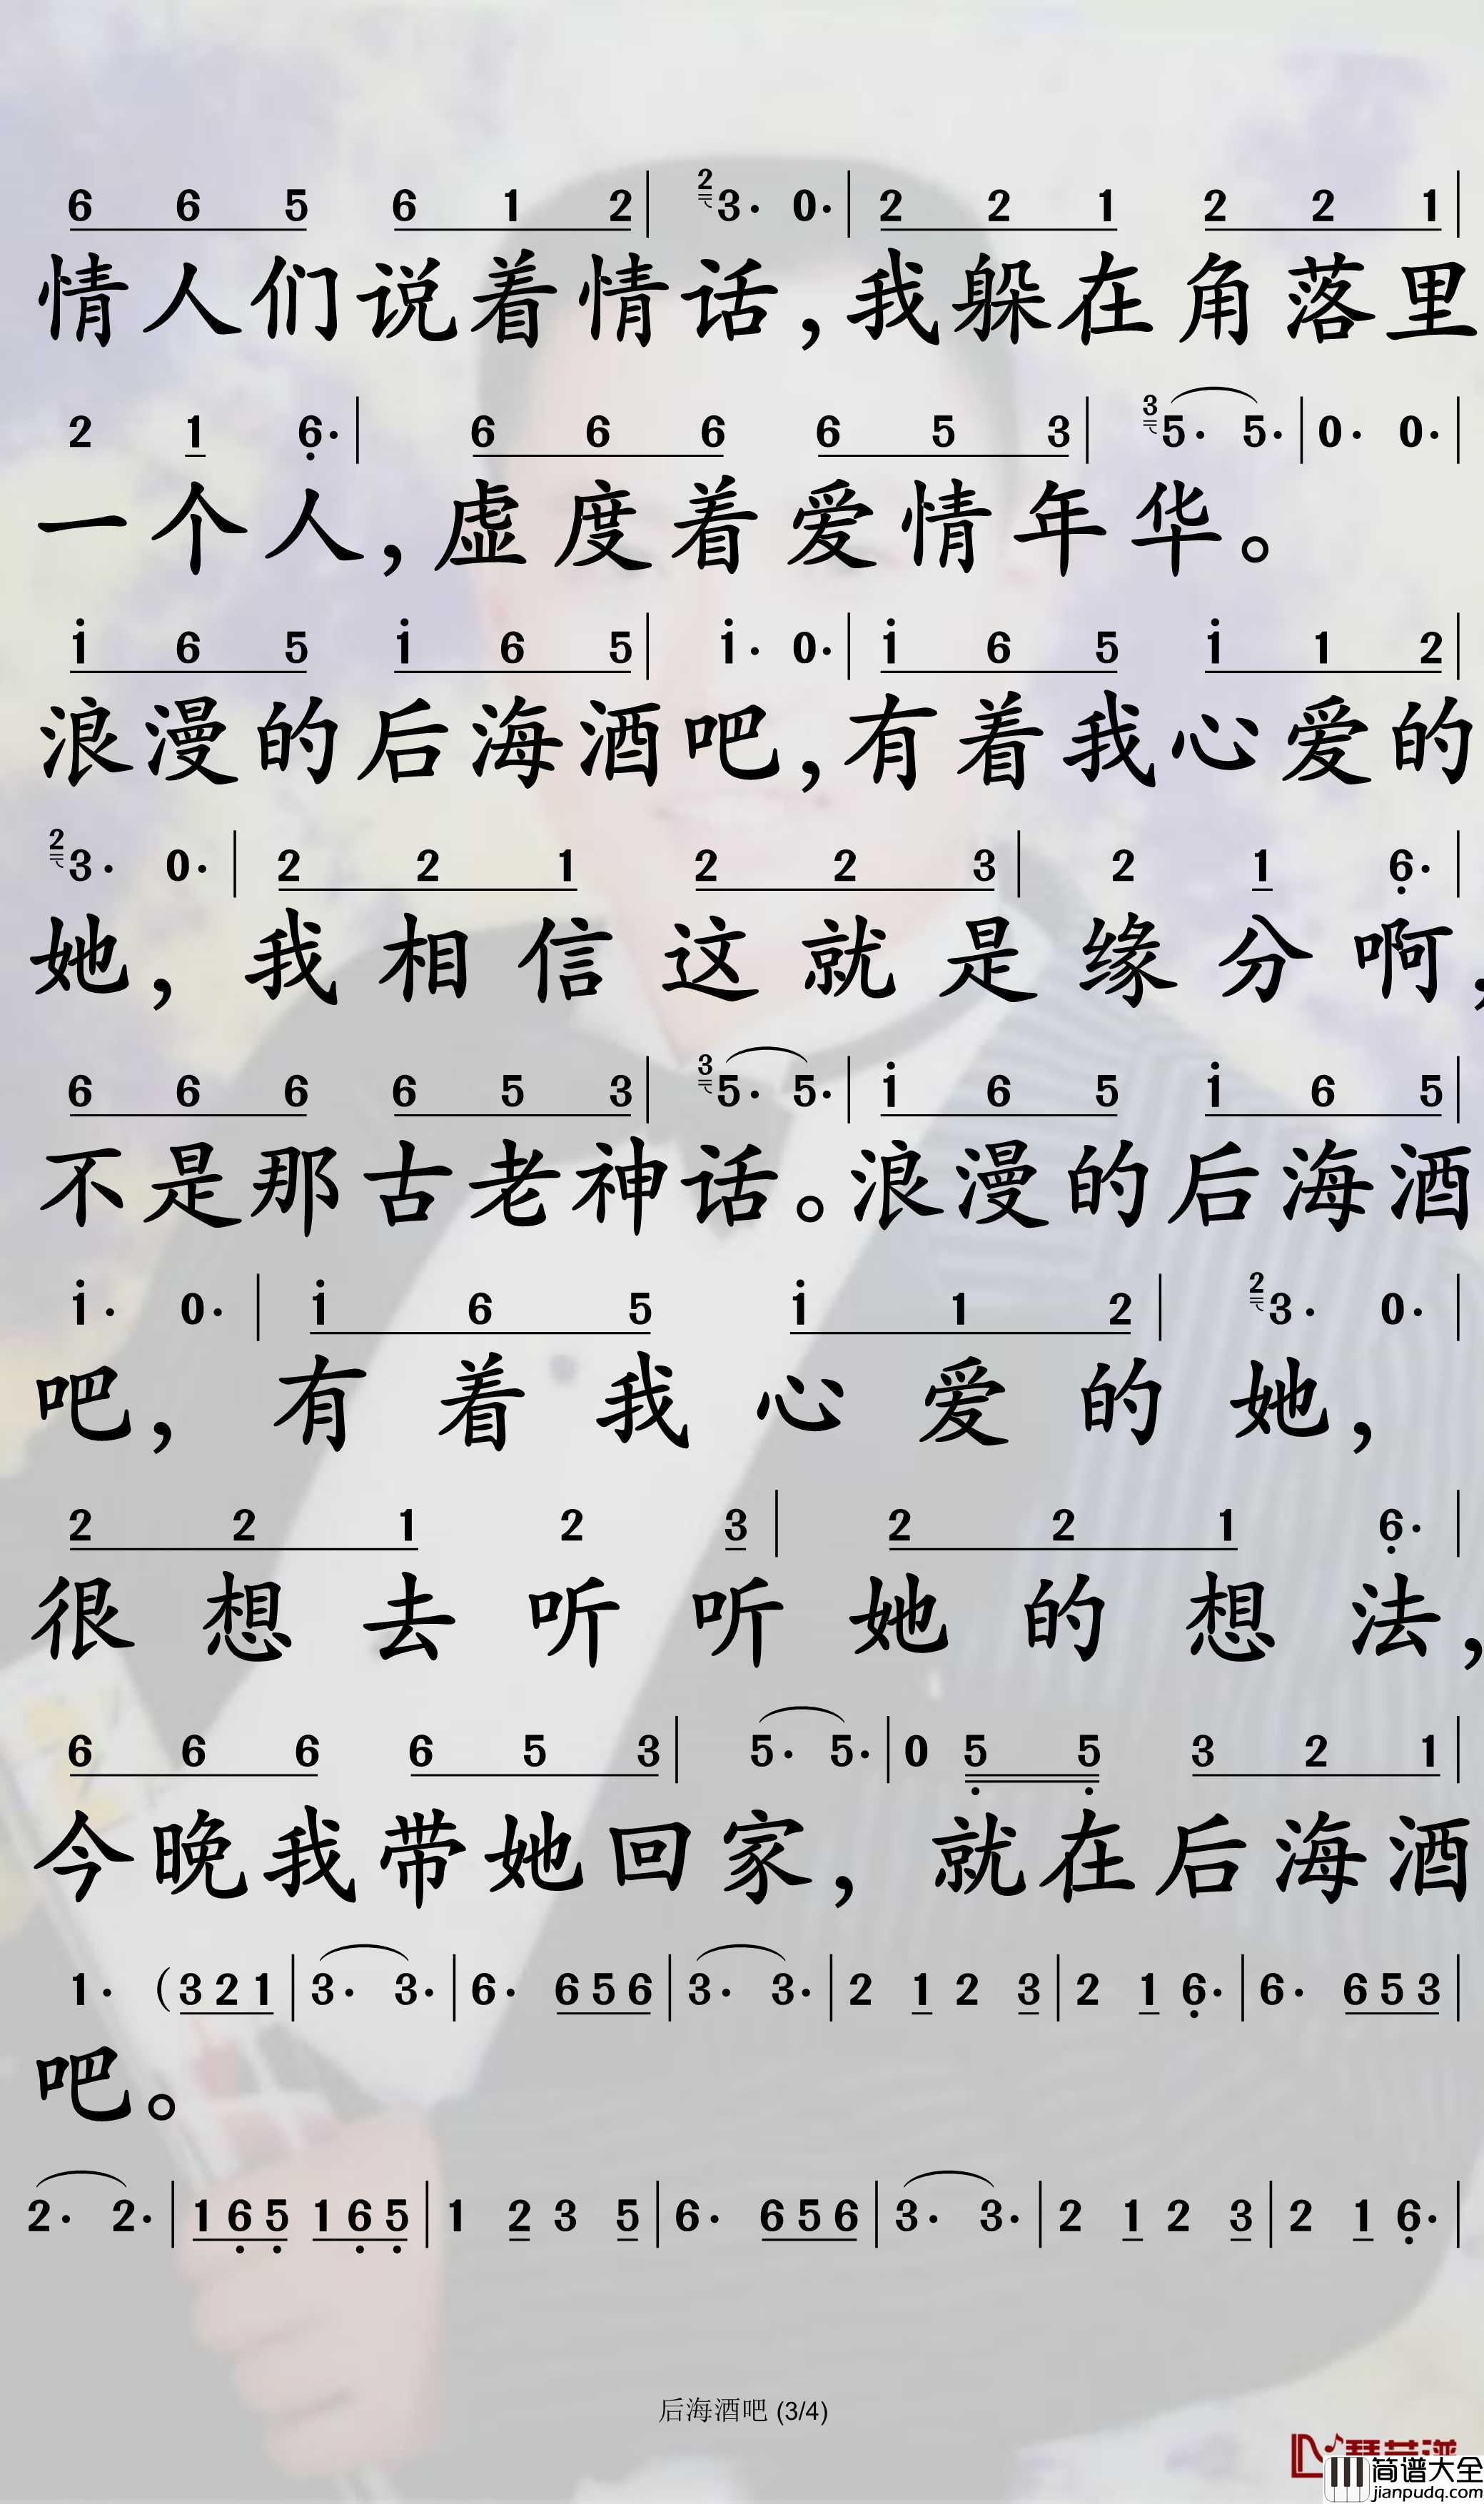 6 6 5 6 1 2 | 2 3· 0· | 2 2 1 2 2 1 |
情人们说着情话，我躲在角落里
2 1 6· | 6 6 6 6 5 3 | 3 5· 5· | 0· 0· |
一个人，虚度着爱情年华。
i 6 5 i 6 5 | i· 0· | i 6 5 i 1 2 |
浪漫的后海酒吧，有着我心爱的
2 3· 0· | 2 2 1 2 2 3 | 2 1 6· |
她，我相信这就是缘分啊，
6 6 6 6 5 3 | 3 5· 5· | i 6 5 i 6 5 |
不是那古老神话。浪漫的后海酒
i· 0· | i 6 5 i 1 2 | 2 3· 0· |
吧，有着我心爱的她，
2 2 1 2 3 | 2 2 1 6· |
很想去听听她的想法，
6 6 6 6 5 3 | 5· 5· | 0 5 5 3 2 1 |
今晚我带她回家，就在后海酒
1· (3 2 1 | 3· 3· | 6· 6 5 6 | 3· 3· | 2 1 2 3 | 2 1 6· | 6· 6 5 3 |
吧。
2· 2· | 1 6 5 1 6 5 | 1 2 3 5 | 6· 6 5 6 | 3· 3· | 2 1 2 3 | 2 1 6· |
后海酒吧 (3/4)
简谱大全
jianpudq.com